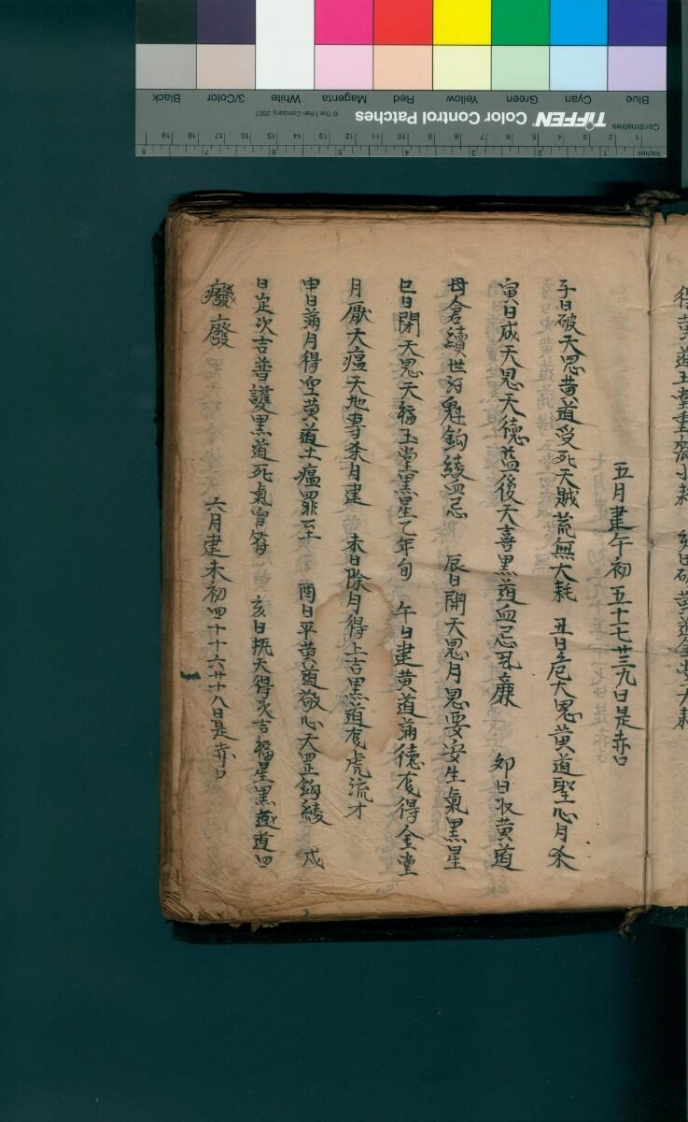 五月建午初五十七廿九日是赤口
子日破天恩黄道受死天賊荒無大耗 丑日危天恩黄道聖心月杀
寅日成天恩天德益後天喜黒道血忌瓦廉 卯日收黄道
母倉續世河魁鈎綾血忌 辰日開天恩月恩要安生氣黒星
巳日閉天恩天福玉堂黒星乙年旬 午日建黄道滿德夜得金堂
月厭大瘟天地專杀月建 未日除月得上吉黒道夜虎流才
申日滿月得聖黄道土瘟罪至 酉日平黄道敬心天罡鈎綾 戌
日定次吉普護黒道死氣官符 亥日执天得次吉福星黒道道四
癈廢 六月建未初四十十六廿十八日是赤口
TIFFEN Color Control Patches
© The Tiffen Company, 2007
Blue Cyan Green Yellow Red Magenta White 3/Color Black
Centimetres
Inches